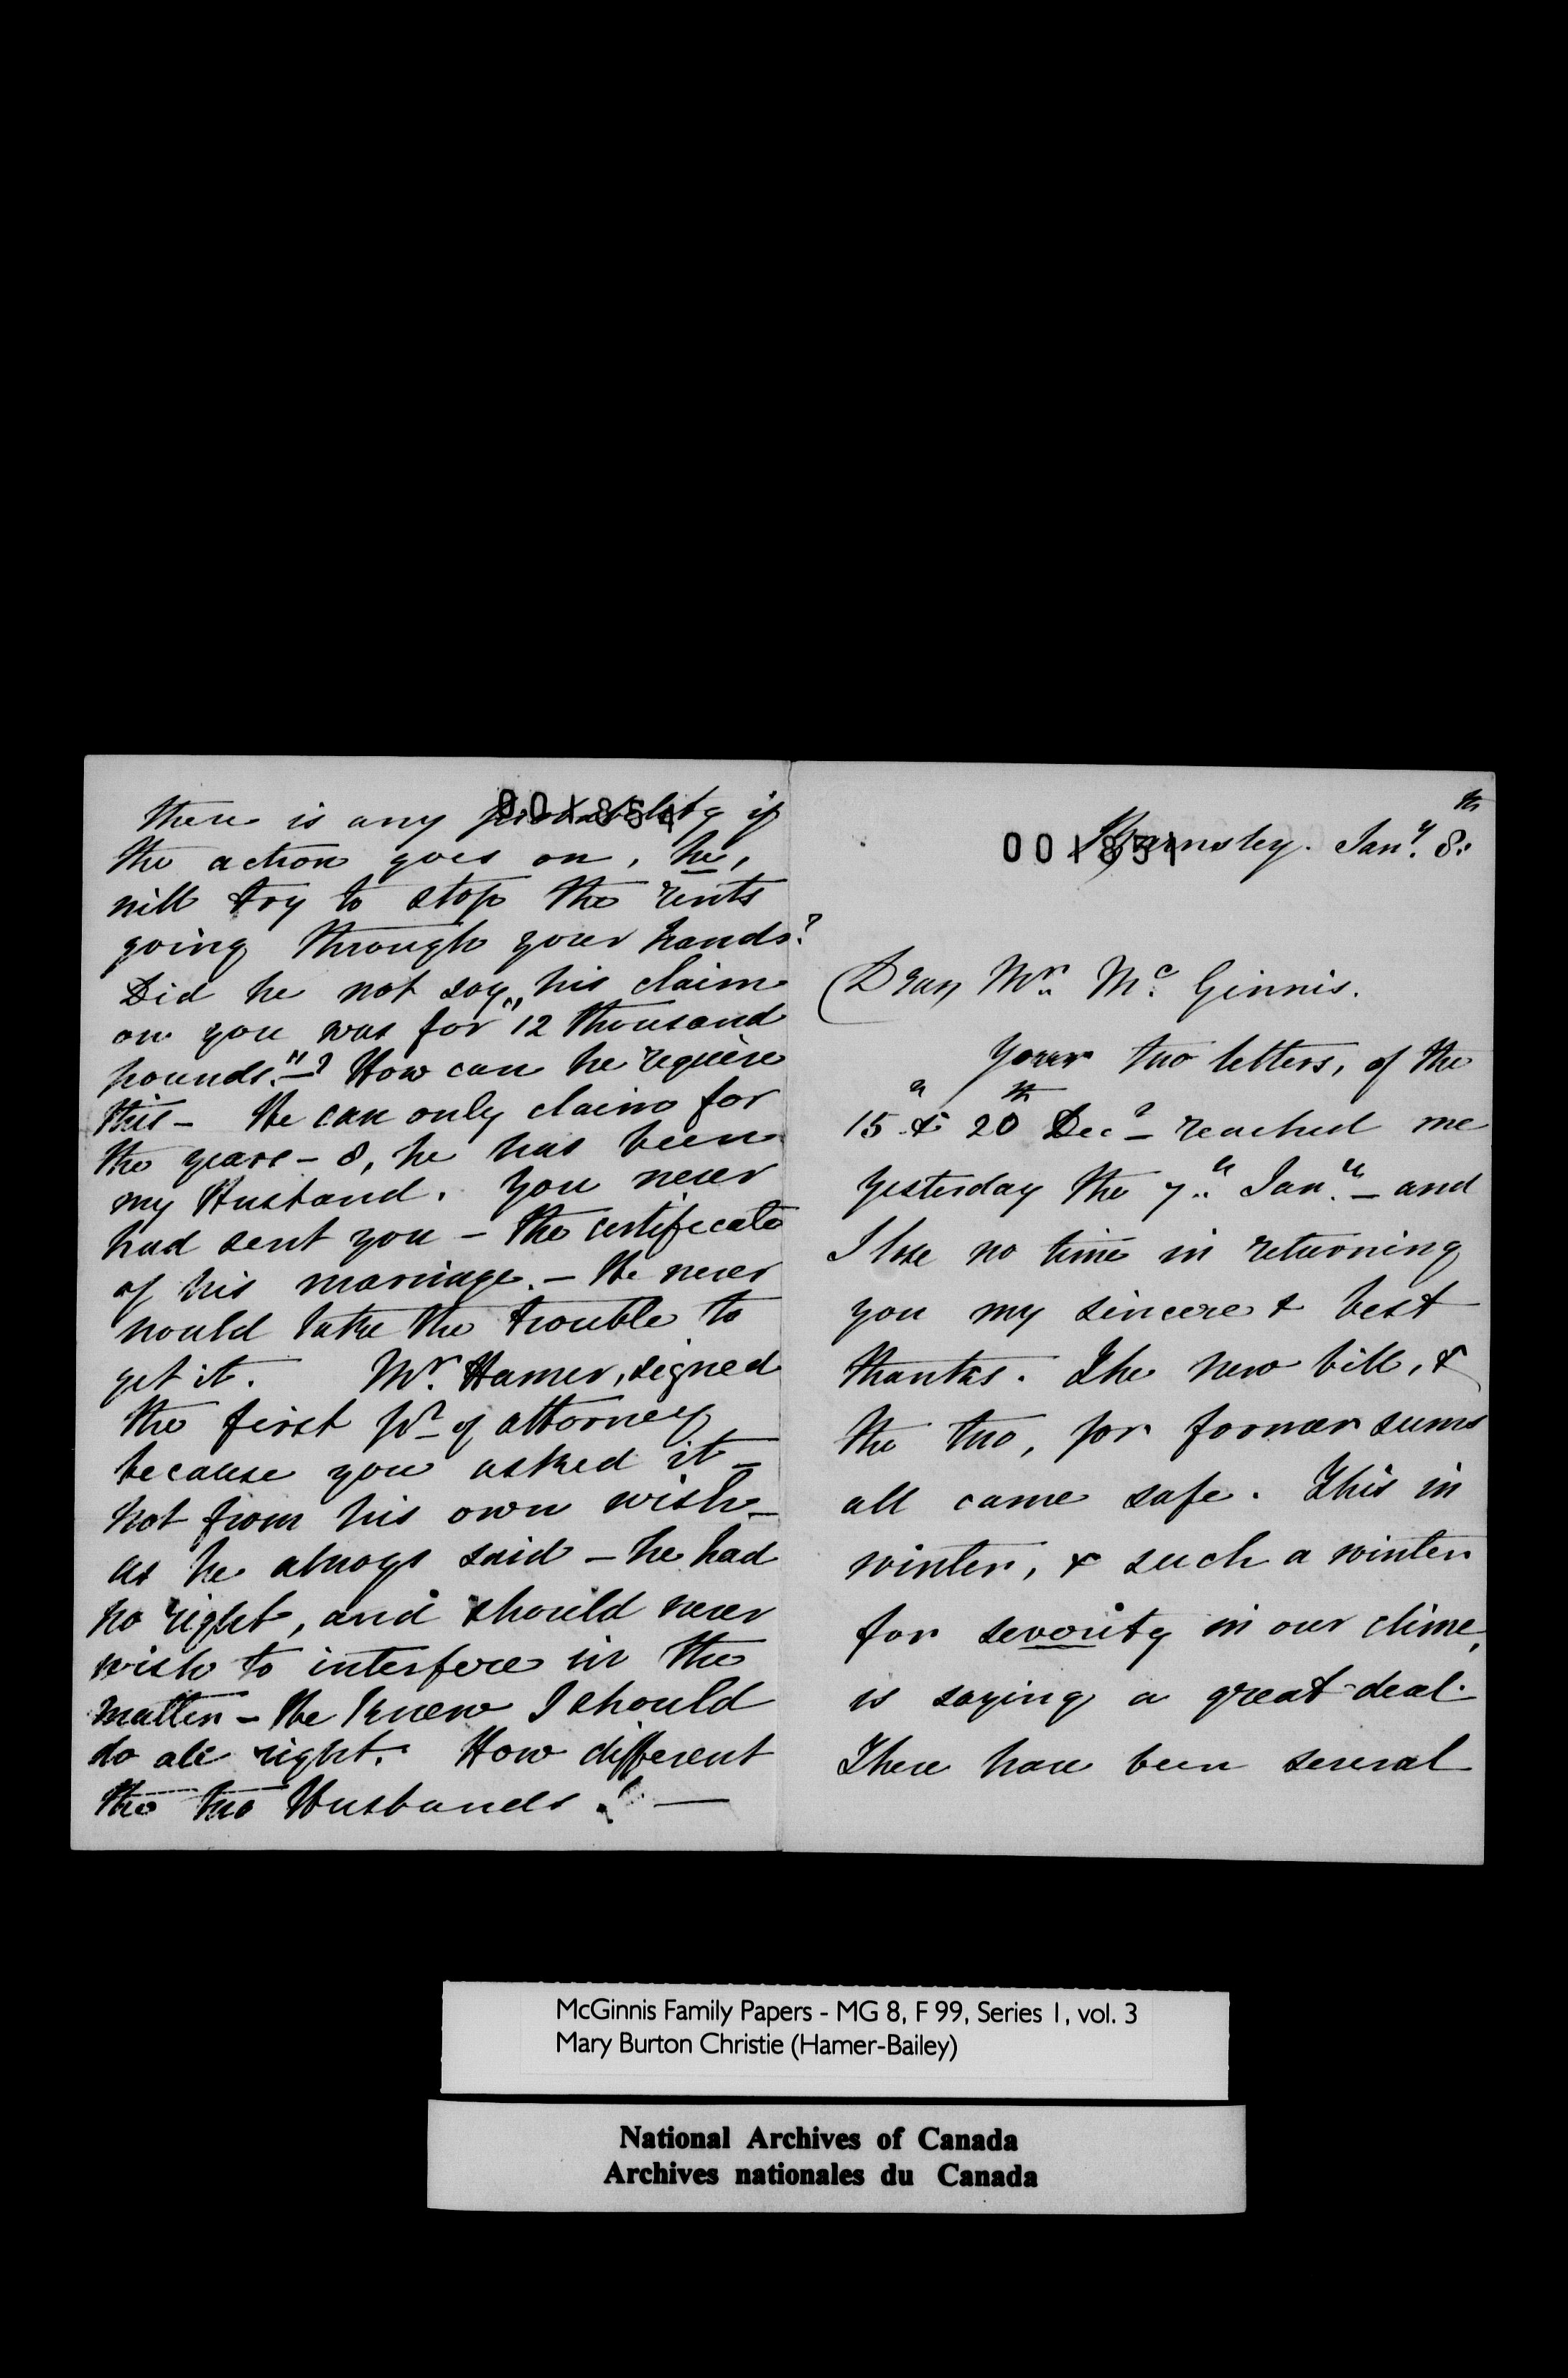 001854
there is any probability if
the action goes on, he,
will try to stop the rents
going through your hands?
Did he not say, his claim
on you was for "12 thousand
pounds."–? How can he require
this – He can only claim for
the years – 8, he has been
my Husband. You never
had sent you – the certificate
of his marriage. – He never
would take the trouble to
get it. Mr. Hamer, signed
the first Pr of attorney
because you asked it –
not from his own wish –
as he always said – he had
no right, and should never
wish to interfere in the
matter – He knew I should
do all right. How different
the two Husbands! —
001851
Jany. 8th
Dear Mr. Mc. Ginnis.
Your two letters, of the
15 & 20th Decr – reached me
yesterday the 7th Jany. – and
I lose no time in returning
you my sincere & best
thanks. The new bill, &
the two, for former sums
all came safe. This in
winter, & such a winter
for severity in our clime,
is saying a great deal.
There have been several
McGinnis Family Papers - MG 8, F 99, Series 1, vol. 3
Mary Burton Christie (Hamer-Bailey)
National Archives of Canada
Archives nationales du Canada